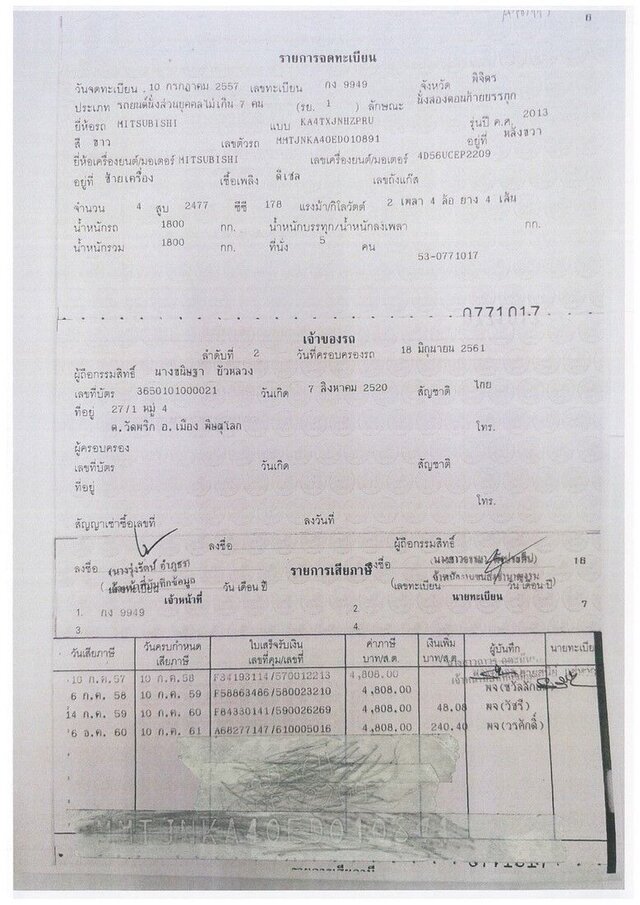 6
รายการจดทะเบียน
วันจดทะเบียน 10 กรกฎาคม 2557 เลขทะเบียน กง 9949 จังหวัด พิจิตร
ประเภท รถยนต์นั่งส่วนบุคคลไม่เกิน 7 คน (รย. 1 ) ลักษณะ นั่งสองตอนท้ายบรรทุก
ยี่ห้อรถ MITSUBISHI แบบ KA4TXJNHZPRU รุ่นปี ค.ศ. 2013
สี ขาว เลขตัวรถ MMTJNKA40ED010891 อยู่ที่ หลังขวา
ยี่ห้อเครื่องยนต์/มอเตอร์ MITSUBISHI เลขเครื่องยนต์/มอเตอร์ 4D56UCEP2209
อยู่ที่ ซ้ายเครื่อง เชื้อเพลิง ดีเซล เลขถังแก๊ส
จำนวน 4 สูบ 2477 ซีซี 178 แรงม้า/กิโลวัตต์ 2 เพลา 4 ล้อ ยาง 4 เส้น
น้ำหนักรถ 1800 กก. น้ำหนักบรรทุก/น้ำหนักลงเพลา กก.
น้ำหนักรวม 1800 กก. ที่นั่ง 5 คน
53-0771017
0771017
เจ้าของรถ
ลำดับที่ 2 วันที่ครอบครองรถ 18 มิถุนายน 2561
ผู้ถือกรรมสิทธิ์ นางชนิษฐา บัวหลวง
เลขที่บัตร 3650101000021 วันเกิด 7 สิงหาคม 2520 สัญชาติ ไทย
ที่อยู่ 27/1 หมู่ 4
ต.วัดพริก อ.เมือง พิษณุโลก โทร.
ผู้ครอบครอง
เลขที่บัตร วันเกิด สัญชาติ
ที่อยู่
โทร.
สัญญาเช่าซื้อเลขที่ ลงวันที่ ผู้ถือกรรมสิทธิ์
ลงชื่อ ลงชื่อ ลงชื่อ
(นางรุ่งรัตน์ อำภูธร) รายการเสียภาษี 18
วัน เดือน ปี (เลขทะเบียน วัน เดือน ปี)
เจ้าหน้าที่ นายทะเบียน
1. กง 9949 2. 7
3. 4.
วันเสียภาษี วันครบกำหนดเสียภาษี ใบเสร็จรับเงิน เลขที่คุม/เลขที่ ค่าภาษี บาท/ส.ต. เงินเพิ่ม บาท/ส.ต. ผู้บันทึก นายทะเบีย
10 ก.ค.57 10 ก.ค.58 F34193114/570012213 4,808.00
6 ก.ค. 58 10 ก.ค. 59 F58863486/580023210 4,808.00
14 ก.ค. 59 10 ก.ค. 60 F84330141/590026269 4,808.00 48.08 พจ(วัชรี)
6 ธ.ค. 60 10 ก.ค. 61 A68277147/610005016 4,808.00 240.40 พจ(วรศักดิ์)
0771017
รายการเสียภาษี